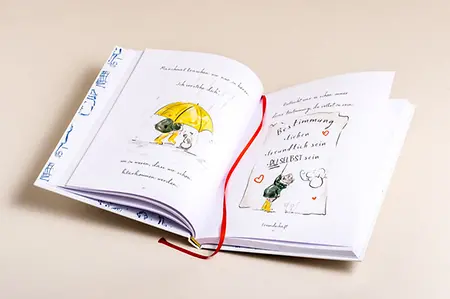 Manchmal brauchen wir nur zu hören:
„Ich verstehe dich“,
um zu wissen, dass wir schon
werden.
es schon immer
deine Bestimmung, du selbst zu sein.
Bestimmung
-lieben
-freundlich sein
-DU SELBST sein